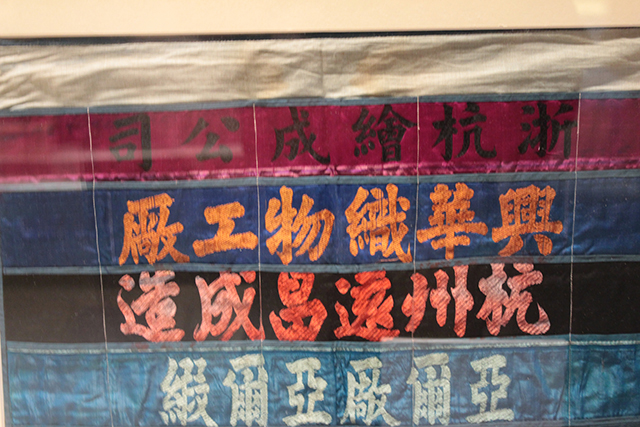 浙杭繪成公司
興華織物工厰
杭州遠昌成造
亞爾厰亞爾緞